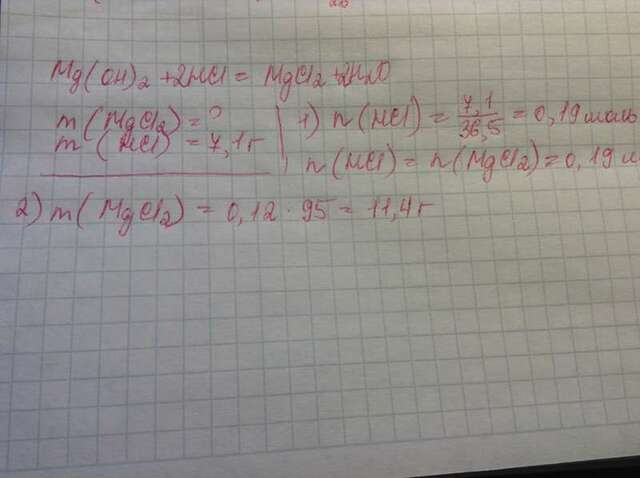 Mg(OH)2 + 2HCl = MgCl2 + 2H2O
m(MgCl2) = ?
m(HCl) = 7,1г
1) n(HCl) = 7,1/36,5 = 0,19 моль
n(HCl) = n(MgCl2) = 0,19 м
2) m(MgCl2) = 0,12 · 95 = 11,4г